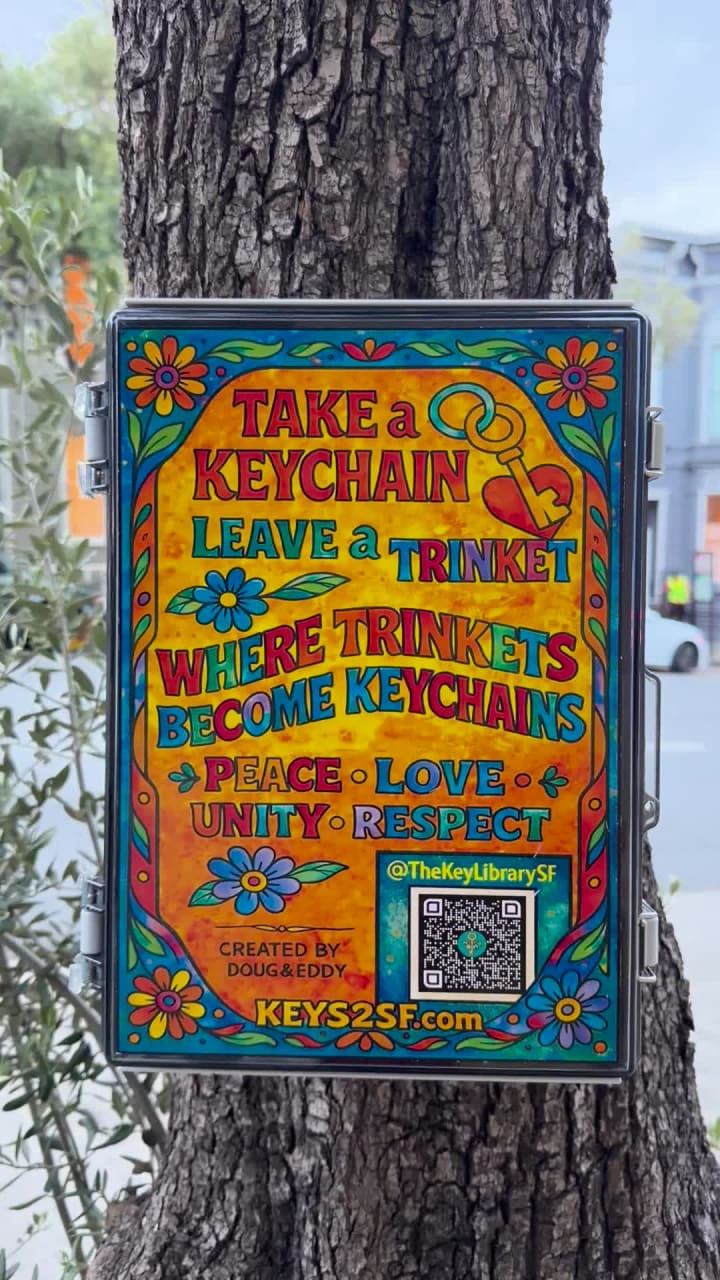 TAKE a
KEYCHAIN
LEAVE a TRINKET
WHERE TRINKETS
BECOME KEYCHAINS
PEACE • LOVE •
UNITY • RESPECT
@TheKeyLibrarySF
CREATED BY
DOUG&EDDY
KEYS2SF.com